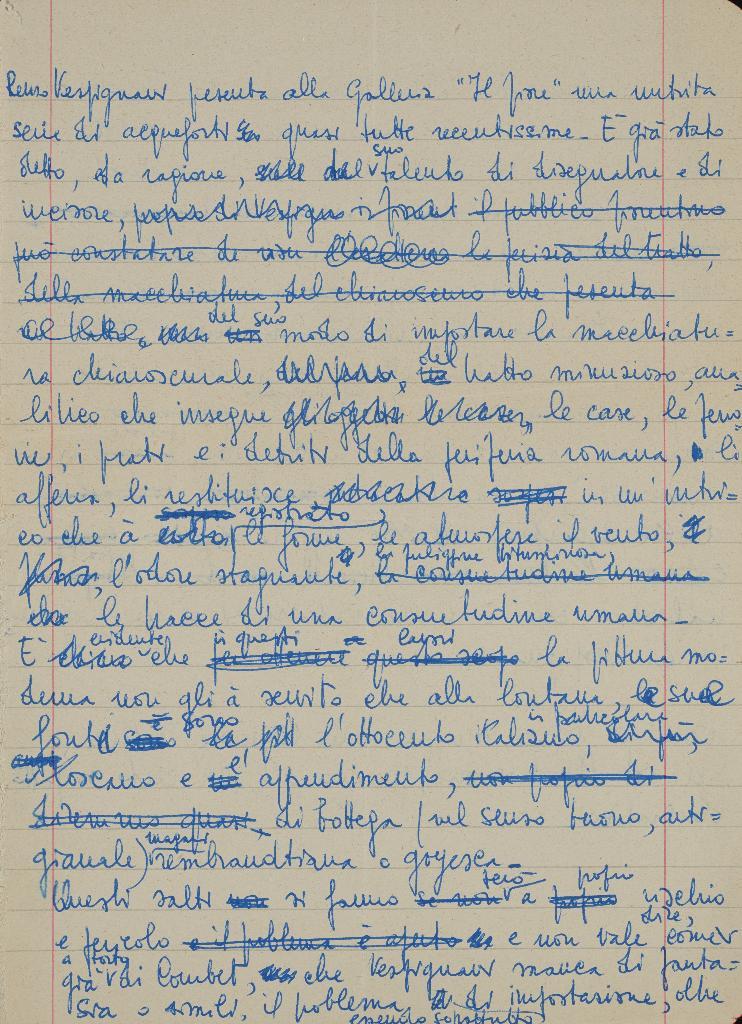 Renzo Vespignani presenta alla Galleria "Il fiore" una nutrita
serie di acqueforti quasi tutte recentissime - È già stato
detto, e a ragione, del suo talento di disegnatore e di
incisore, il pubblico fiorentino
può constatare la del tratto,
della macchiatura, del chiaroscuro che presenta
del suo modo di impostare la macchiatu=
ra chiaroscurale, del tratto minuzioso, ana=
litico che insegue le case, le ferro=
vie, i prati e i detriti della periferia romana, li
afferra, li restituisce in un intri=
co che à registrato le forme, le atmosfere il vento,
l'odore stagnante, la fuliggine bituminosa, la consuetudine umana
le tracce di una consuetudine umana -
È evidente che in questi lavori la pittura mo=
derna non gli à servito che alla lontana, le sue
fonti sono l'ottocento italiano, in particolare
toscano e l'apprendimento, non proprio di
diremmo quasi, di bottega (nel senso buono, arti=
gianale) magari rembrandtiana o goyesca -
Questi salti si fanno però a proprio rischio
e pericolo e il problema è aperto e non vale dire, come
già a torto di Courbet, che Vespignani manca di fanta=
sia o simili, il problema di impostazione, oltre
essendo soprattutto